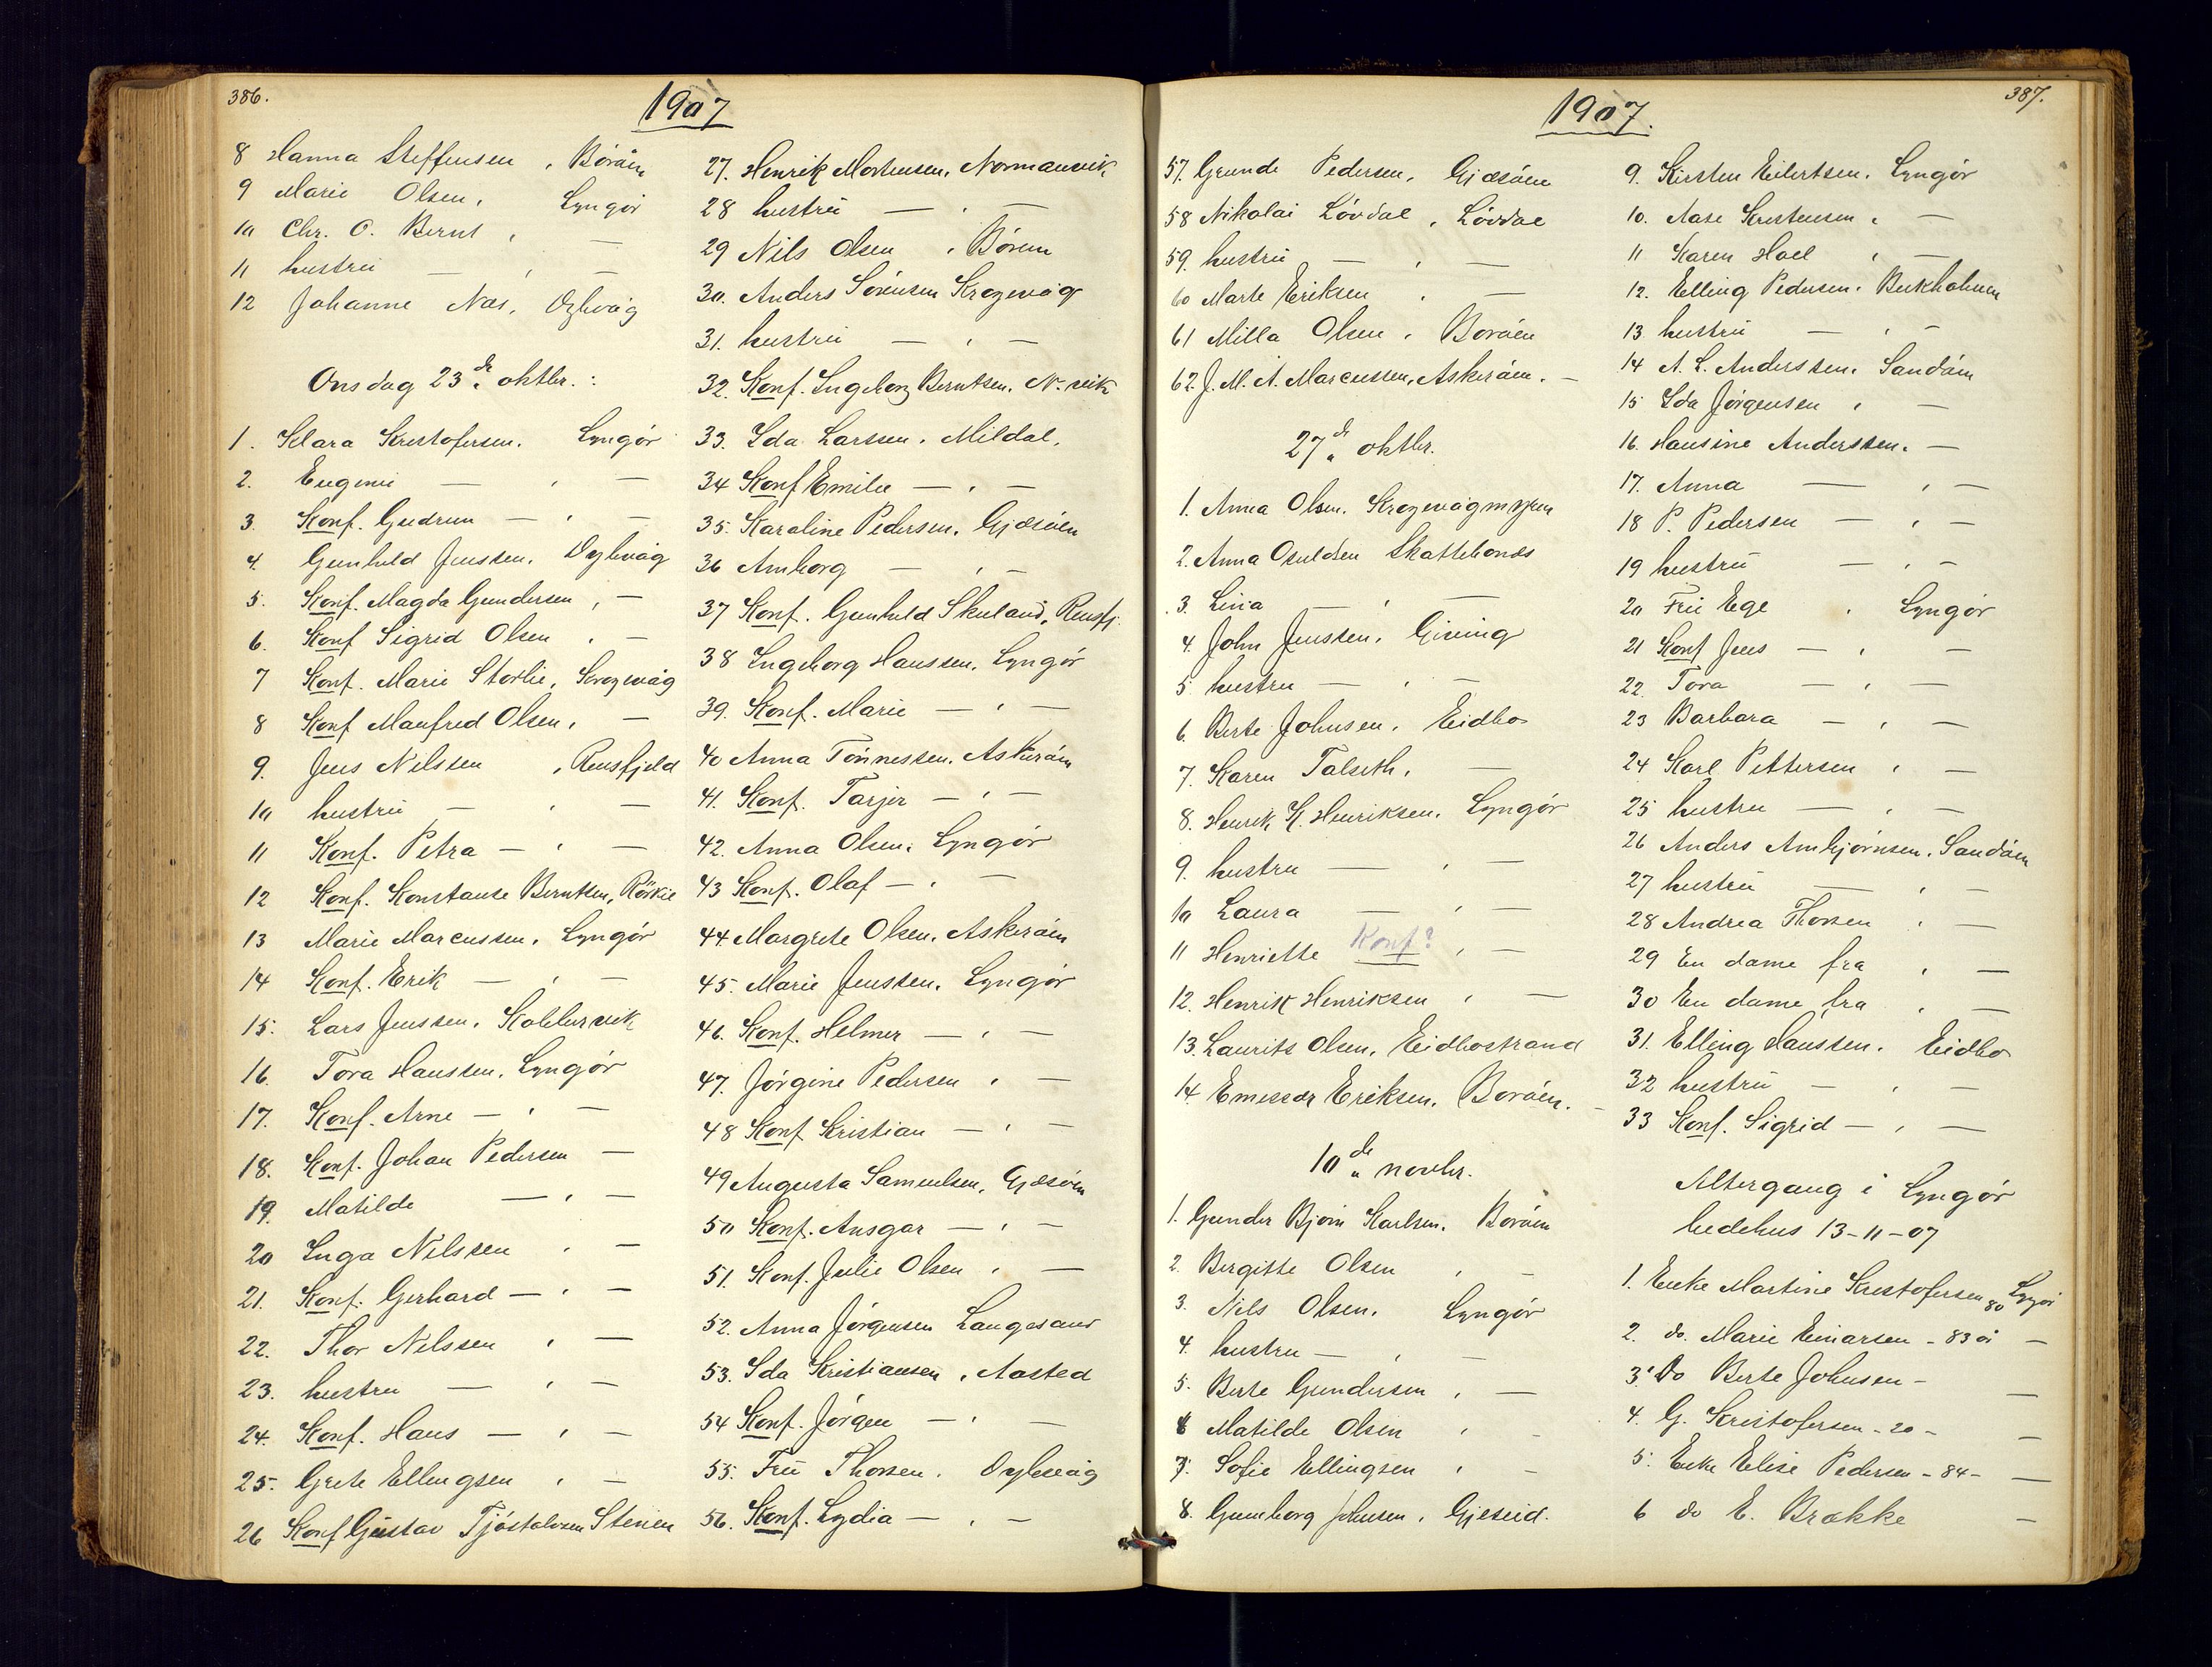 386.
1907
8 Hanna Steffensen, Böröen
9 Marie Olsen, Lyngör
10 Chr. O. Bernt, —
11 hustru — , —
12 Johanne Næs, Dybvåg
Onsdag 23de oktbr.:
1. Klara Kristofersen. Lyngör
2. Eugenie — , —
3. Konf. Gudrun — , —
4. Gunhild Jenssen. Dybvåg
5. Konf. Magda Gundersen, —
6. Konf Sigrid Olsen , —
7 Konf. Marie Storlie, Krogevåg
8 Konf Manfred Olsen, —
9. Jens Nilssen , Rensfjeld
10 hustru — , —
11 Konf. Petra — , —
12 Konf. Konstanse Berntsen,
13 Marie Marcussen, Lyngör
14 Konf. Erik — , —
15. Lars Jenssen,
16. Tora Hanssen, Lyngör
17. Konf. Arne — , —
18. Konf. Johan Pedersen —
19. Matilde — , —
20 Inga Nilssen , —
21. Konf. Gerhard — , —
22. Thor Nilssen , —
23. hustru — , —
24. Konf. Hans — , —
25. Grete Ellingsen , —
26 Konf Gustav Tjöstolvsen Stenen
27. Henrik Mortensen, Normansvik
28 hustru — , —
29 Nils Olsen , Böröen
30. Anders Sörensen Krogevåg
31. hustru — , —
32. Konf. Ingeborg Berntsen. N.-vik
33. Ida Larssen. Mildal.
34 Konf Emilie — , —
35. Karoline Pedersen. Gjæsöen
36 Amborg — , —
37 Konf. Gunhild Skuland, Rensfj.
38 Ingeborg Hanssen. Lyngör
39. Konf. Marie — , —
40 Anna Tönnessen. Askeröen
41. Konf. Tarjer — , —
42. Anna Olsen, Lyngör
43 Konf. Olaf — , —
44 Margrete Olsen. Askeröen
45. Marie Jenssen. Lyngör
46. Konf. Helmer — , —
47. Jörgine Pedersen , —
48 Konf Kristian — , —
49 Augusta Samuelsen, Gjæsöen
50 Konf. Ansgar — , —
51. Konf. Julie Olsen , —
52. Anna Jörgensen Langesand
53. Ida Kristiansen, Aasted
54 Konf. Jörgen — , —
55. Fru Thorsen. Dybevåg
56. Konf. Lydia — , —
1907.
387.
57. Gunde Pedersen, Gjæsöen
58 Nikolai Lövdal, Lövdal
59. hustru — , —
60 Marte Eriksen , —
61 Milla Olsen , Boröen
62. J. M. A. Marcussen, Askeröen. —
27de oktbr.
1. Anna Olsen. Krogevågmyren
2. Anna Osuldsen Skattebonds
3. Lina — , —
4. John Jenssen, Giening
5. hustru — , —
6. Berte Johnsen. Eidbo
7. Karen Talseth, —
8. Henrik K. Henriksen. Lyngör
9. hustru — , —
10 Laura — , —
11 Henriette Konf? , —
12. Henrik Henriksen , —
13. Laurits Olsen, Eidbostrand
14. Eriksen. Boröen. —
10de novbr.
1. Gunder Björn Karlsen. Boröen
2. Birgitte Olsen , —
3. Nils Olsen. Lyngör
4. hustru — , —
5. Berte Gundersen , —
6 Matilde Olsen , —
7. Sofie Ellingsen , —
8. Gunborg Johnsen, Gjeseid.
9. Kirsten Eilertsen. Lyngör
10. Aase Kristensen , —
11 Karen Hoel , —
12. Elling Pedersen. Bukholmen
13 hustru — , —
14 A. L. Anderssen. Sandöen
15 Ida Jörgensen , —
16. Hansine Anderssen. —
17. Anna — , —
18 P. Pedersen — , —
19 hustru — , —
20 Fru Ege , Lyngör
21 Konf Jens — , —
22. Tora — , —
23 Barbara — , —
24 Karl Pettersen , —
25 hustru — , —
26 Anders Arnbjörnsen. Sandöen
27 hustru — , —
28 Andrea Thorsen , —
29 En dame fra , —
30 En dame fra , —
31. Elling Hanssen. Eidbo
32 hustru — , —
33 Konf. Sigrid — , —
Altergang i Lyngör
bedehus 13-11-07
1. Enke Martine Kristofersen 80 Lyngör
2. do. Marie Einarsen - 83 år —
3. Do Berte Johnsen - —
4. G. Kristofersen - 20 - —
5. Enke Elise Pedersen - 84 - —
6 do E. Brække —